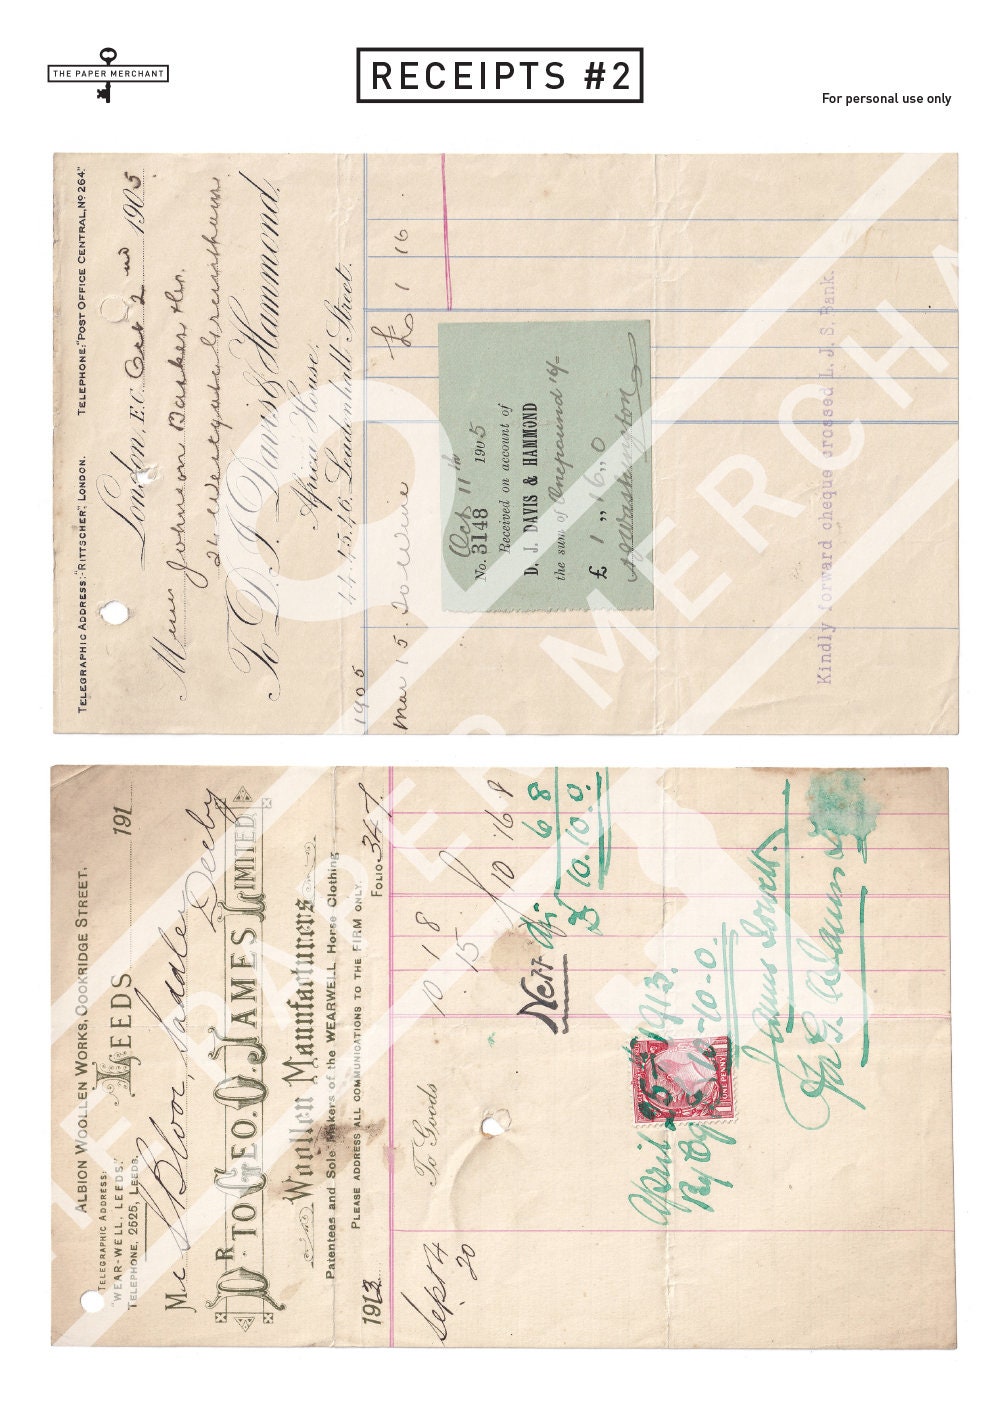 THE PAPER MERCHANT
RECEIPTS #2
For personal use only
TELEGRAPHIC ADDRESS:-"RITTSCHER", LONDON. TELEPHONE:"POST OFFICE CENTRAL, Nº 264."
London, E.C. Oct 2nd 1905
Messrs Johnson Barker &Co.
To D. J. Davis & Hammond.
Africa House.
44.45.46. Leadenhall Street.
1905
Mar 15. To Wine £ 1 16.
Oct 11th
No. 3148 1905
Received on account of
D. J. DAVIS & HAMMOND
the sum of Onepound 16/-
£ 1 " 16 " 0
Kindly forward cheque crossed L. J. S. Bank.
THE PAPER MERCHA
ALBION WOOLLEN WORKS, COOKRIDGE STREET,
TELEGRAPHIC ADDRESS:
"WEAR-WELL, LEEDS."
TELEPHONE, 2525, LEEDS.
LEEDS 191
Mr S Bloor, Saddler Derby
DR TO GEO. O. JAMES LIMITED,
Woollen Manufacturers
Patentees and Sole Makers of the WEARWELL Horse Clothing
PLEASE ADDRESS ALL COMMUNICATIONS TO THE FIRM ONLY.
1913 FOLIO 347
Sept 4 To Goods 10 1 8
20 15
10 16 8
Nett 6 8
£ 10. 10. 0.
April 25th 1913.
By Cq £10-10-0.
ONE PENNY